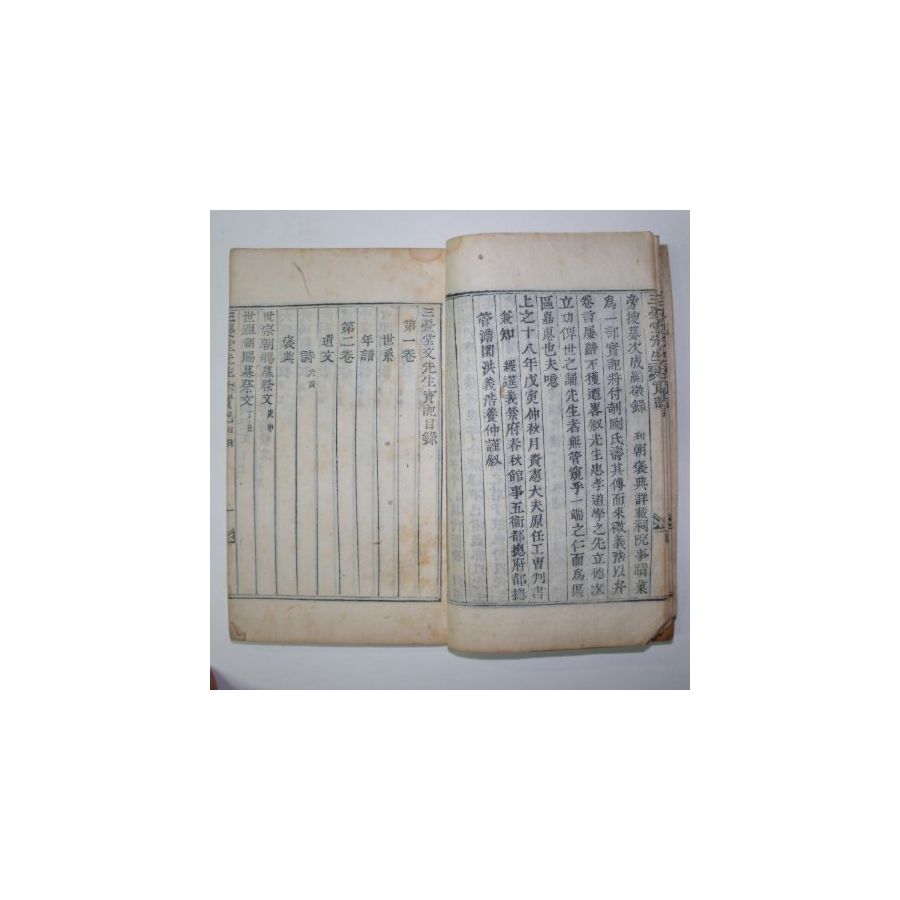 旁搜纂次成編徵錄 列朝褒典詳載祠院事蹟彙
爲一部實記將付剞劂氏壽其傳而來徵義浩以弁
卷言屢辭不獲遒畧叙先生忠孝道學之先立德次
立功俾世之誦先生者無管窺乎一端之仁而爲區
區嘉惠也夫噫
上之十八年戊寅仲秋月資憲大夫原任工曹判書
兼知 經筵義禁府春秋館事五衛都摠府都摠
管澹園洪義浩養仲謹叙
三憂堂文先生實記目錄
第一卷
世系
年譜
第二卷
遺文
詩 六首
褒典
世宗朝賜墓祭文 庚申
世祖朝賜墓祭文 丁丑
三憂堂先生實記目錄 一